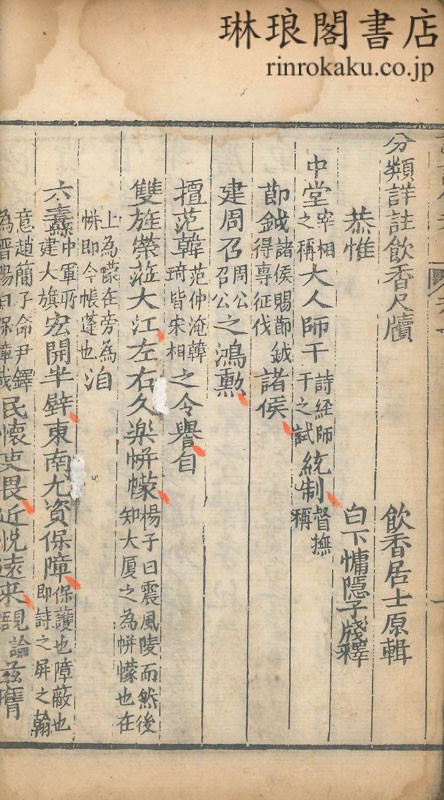 琳琅閣書店
rinrokaku.co.jp
分類詳註飲香尺牘
飲香居士原輯
白下慵隱子牋釋
恭惟
中堂宰相之稱大人師干詩經師干之試統制督撫稱
節鉞諸侯賜節鉞得專征伐諸侯
建周召周公召公之鴻勲
擅范韓范仲淹韓琦皆宋相之令譽自
雙旌榮蒞大江左右久樂帡幪楊子曰震風陵雨然後知大厦之為帡幪也在
上為幪在旁為帡即今帳蓬也洎
六纛中軍所建大旗宏開半壁東南尤資保障保護也障蔽也即詩之屏之翰
意趙簡子命尹鐸為晋陽曰保障哉民懷吏畏近悅遠來見論語茲膺